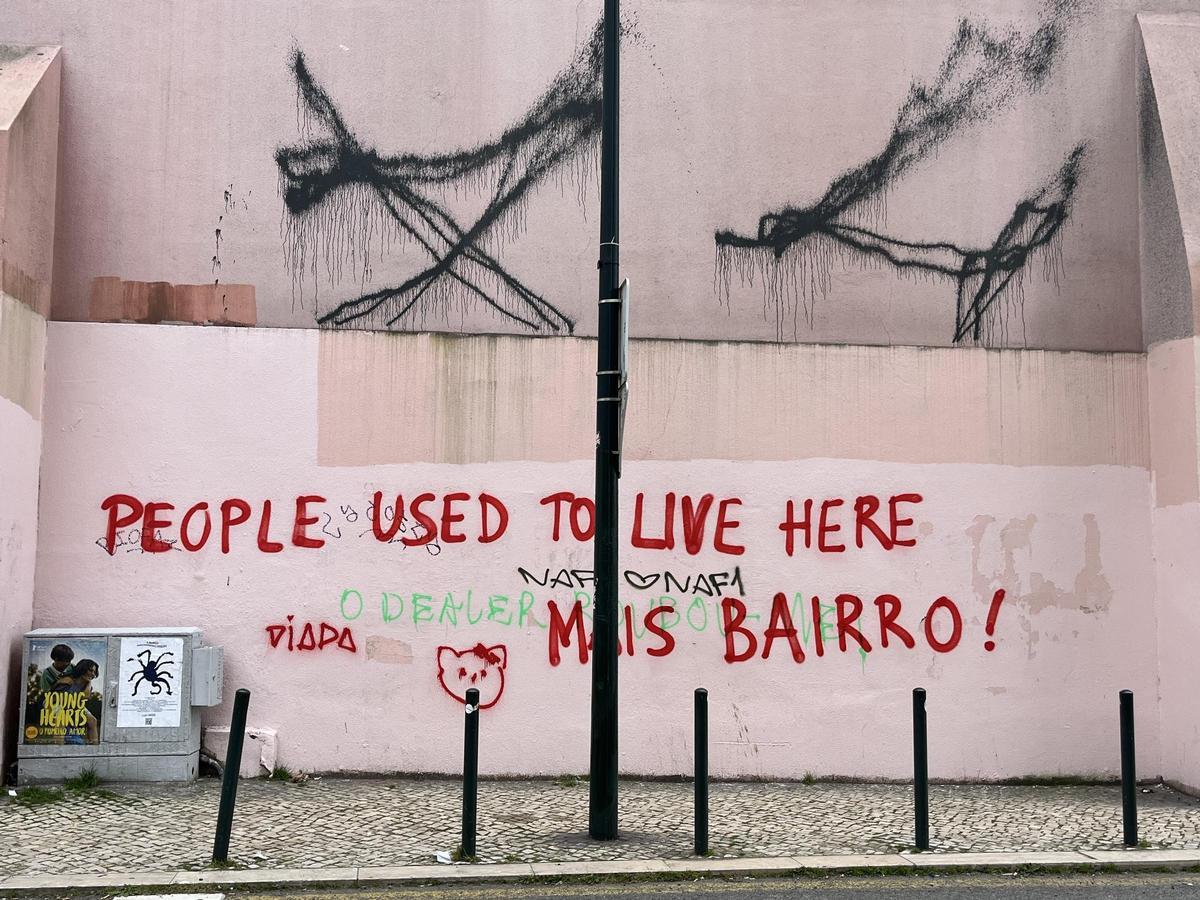 PEOPLE USED TO LIVE HERE
NAF ♡ NAF1
O DEALER ROUBOU-ME
MAIS BAIRRO!
DIADA
YOUNG
HEARTS
O PRIMEIRO AMOR